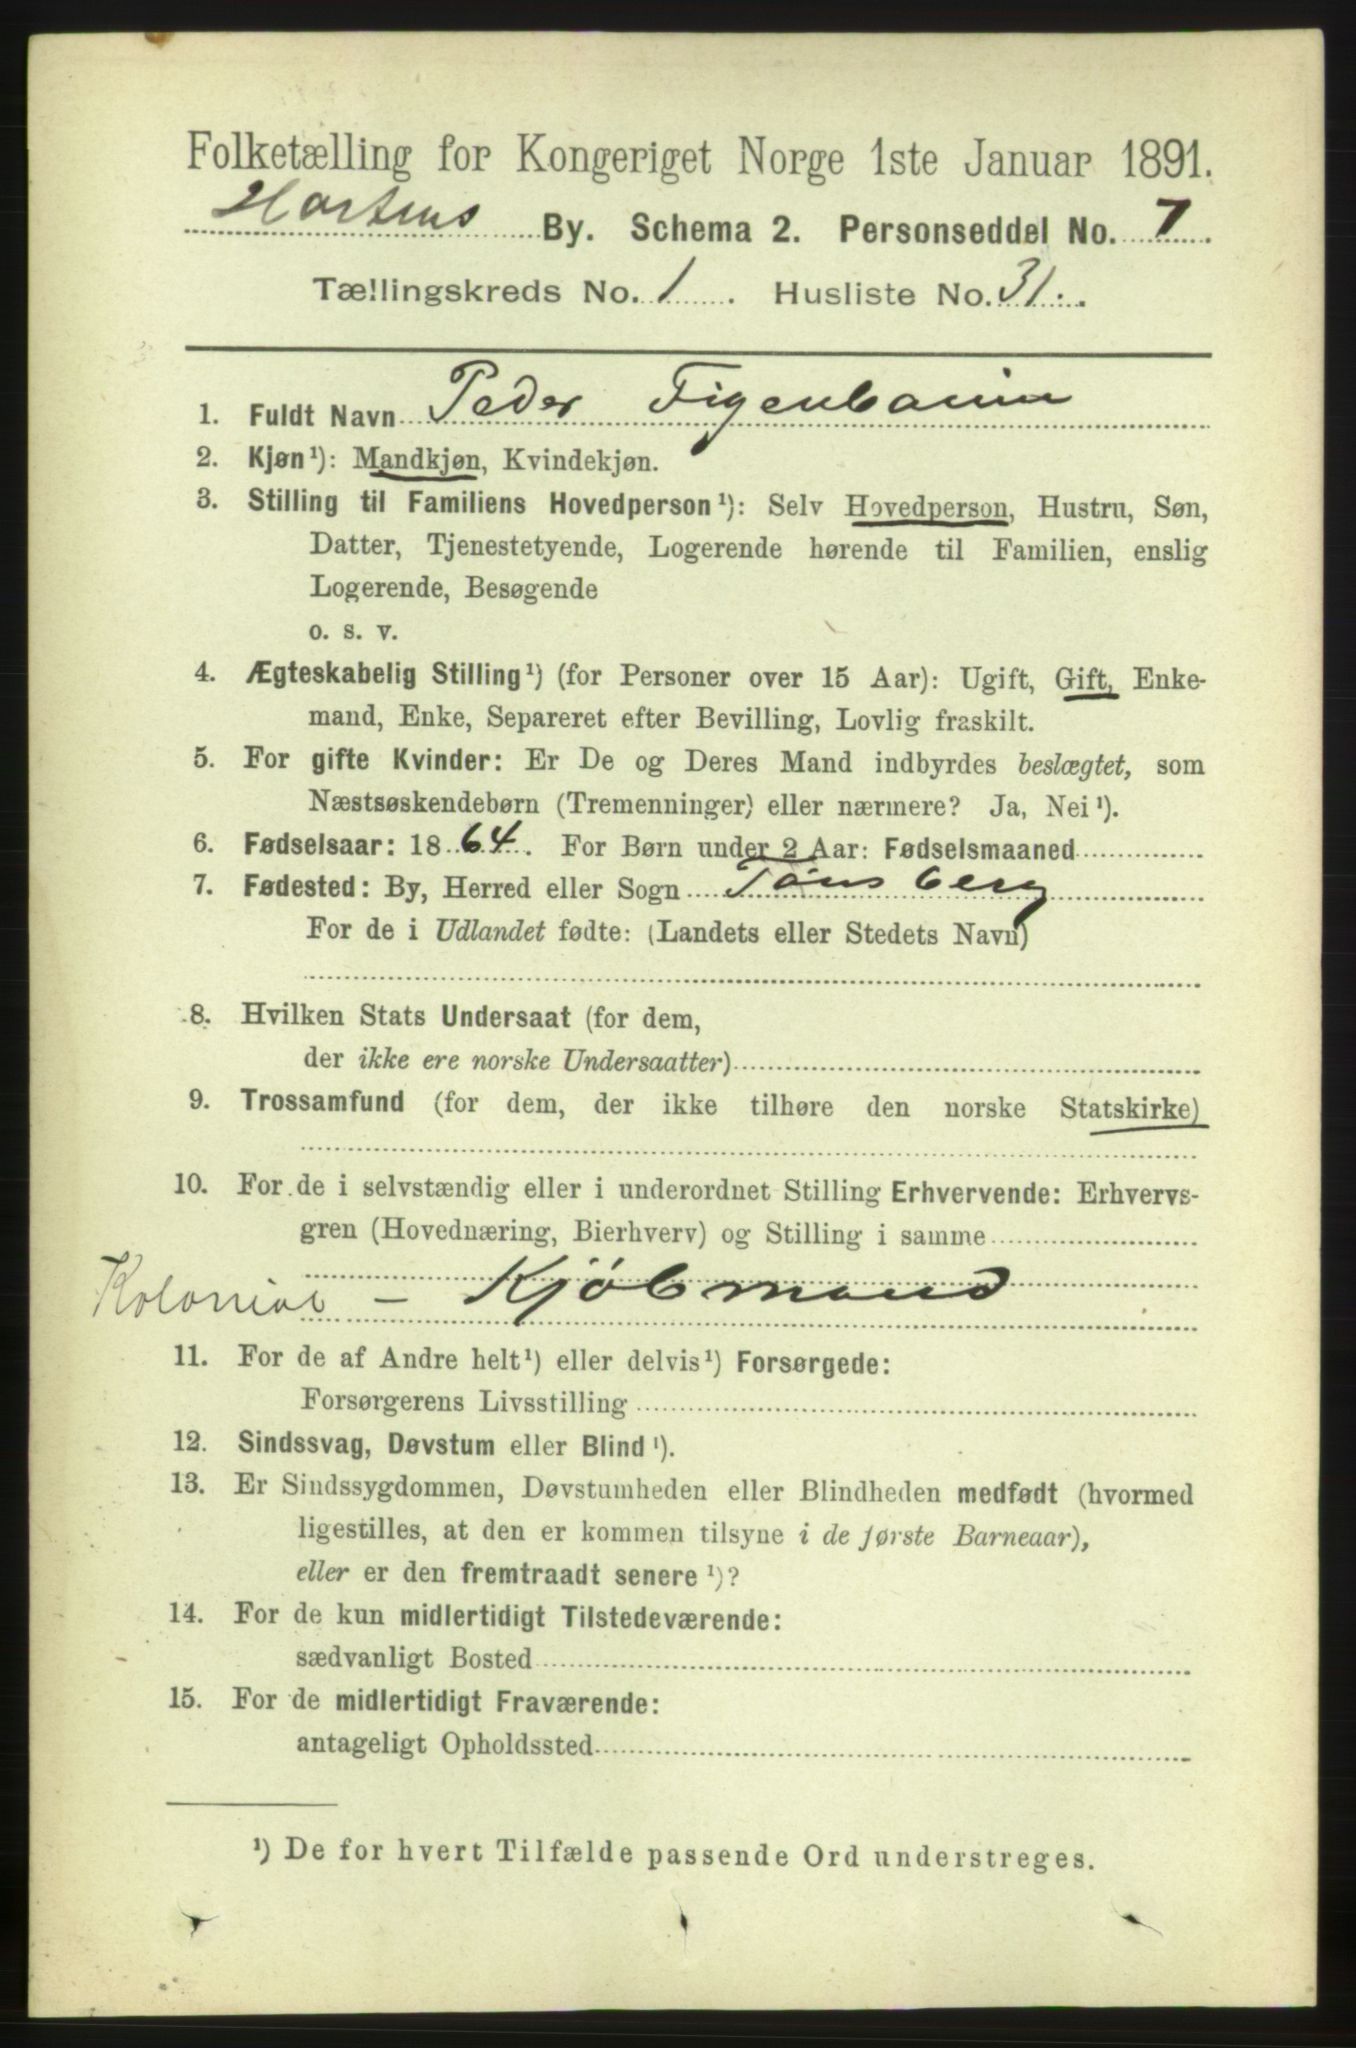 Folketælling for Kongeriget Norge 1ste Januar 1891.
Hortens By. Schema 2. Personseddel No. 7
Tællingskreds No. 1. Husliste No. 31.
1. Fuldt Navn Peder Figenbaum
2. Kjøn¹): Mandkjøn, Kvindekjøn.
3. Stilling til Familiens Hovedperson¹): Selv Hovedperson, Hustru, Søn,
Datter, Tjenestetyende, Logerende hørende til Familien, enslig
Logerende, Besøgende
o. s. v.
4. Ægteskabelig Stilling¹) (for Personer over 15 Aar): Ugift, Gift, Enke-
mand, Enke, Separeret efter Bevilling, Lovlig fraskilt.
5. For gifte Kvinder: Er De og Deres Mand indbyrdes beslægtet, som
Næstsøskendebørn (Tremenninger) eller nærmere? Ja, Nei¹).
6. Fødselsaar: 1864. For Børn under 2 Aar: Fødselsmaaned
7. Fødested: By, Herred eller Sogn Tønsberg
For de i Udlandet fødte: (Landets eller Stedets Navn)
8. Hvilken Stats Undersaat (for dem,
der ikke ere norske Undersaatter)
9. Trossamfund (for dem, der ikke tilhøre den norske Statskirke)
10. For de i selvstændig eller i underordnet Stilling Erhvervende: Erhvervs-
gren (Hovednæring, Bierhverv) og Stilling i samme
Kolonial - Kjøbmand
11. For de af Andre helt¹) eller delvis¹) Forsørgede:
Forsørgerens Livsstilling
12. Sindssvag, Døvstum eller Blind¹).
13. Er Sindssygdommen, Døvstumheden eller Blindheden medfødt (hvormed
ligestilles, at den er kommen tilsyne i de første Barneaar),
eller er den fremtraadt senere¹)?
14. For de kun midlertidigt Tilstedeværende:
sædvanligt Bosted
15. For de midlertidigt Fraværende:
antageligt Opholdssted
¹) De for hvert Tilfælde passende Ord understreges.